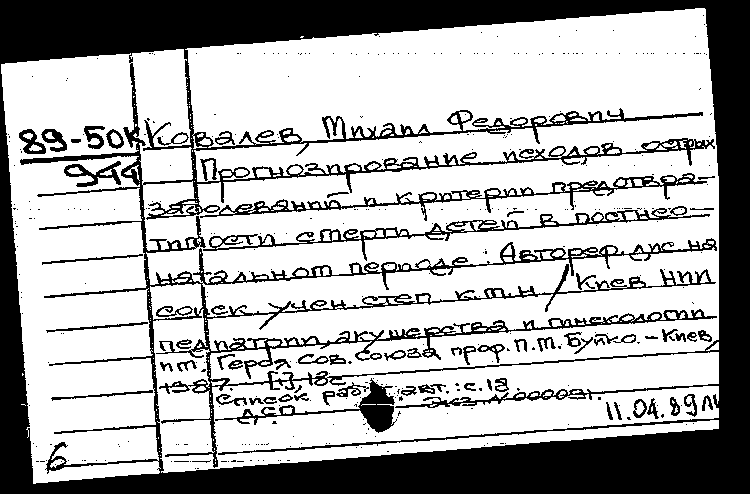 89-50К Ковалев, Михаил Федорович
944 Прогнозирование исходов острых
заболеваний и критерии предотвра-
тимости смерти детей в постнео-
натальном периоде : Автореф. дис. на
соиск. учен. степ к.м.н / Киев НИИ
педиатрии, акушерства и гинекологии
им. Героя Сов. Союза проф. П.М. Буйко. - Киев,
1987. [1], 18с
Список раб. авт.: с. 18.
ДСП. Экз. N 000091.
11.04.89
6